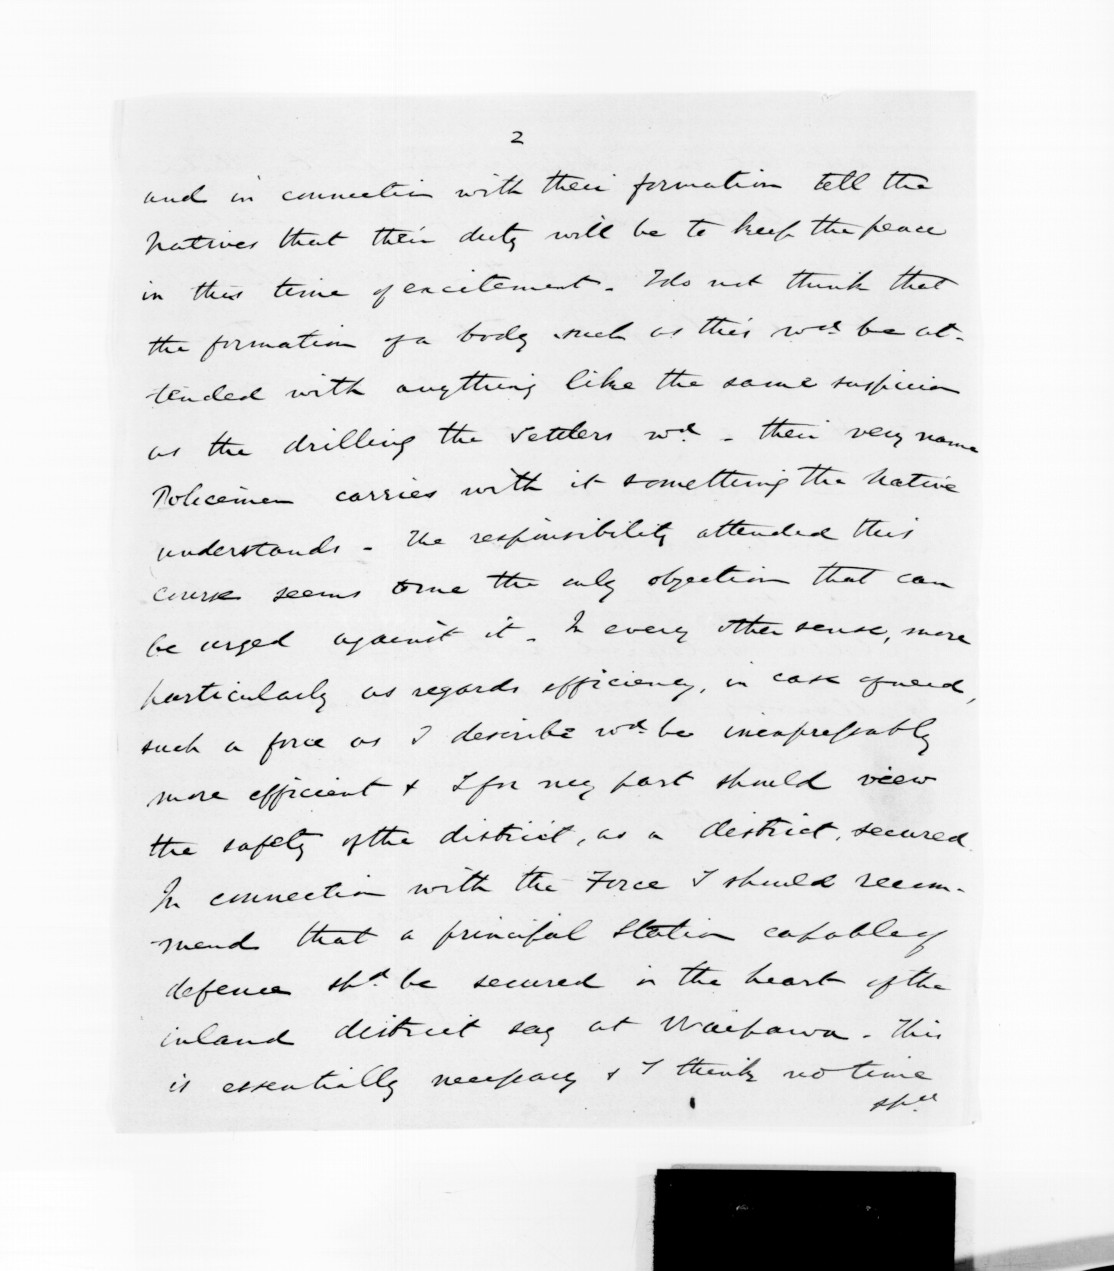 2
and in connection with their formation tell the
Natives that their duty will be to keep the peace
in this time of excitement. I do not think that
the formation of a body such as this wd. be at-
tended with anything like the same suspicion
as the drilling the Settlers wd. - their very name
Policemen carries with it something the Native
understands - The responsibility attended this
course seems to me the only objection that can
be urged against it. In every other sense, more
particularly as regards efficiency, in case of need,
such a force as I describe wd. be inexpressably
more efficient & I for my part should view
the safety of the district, as a district, secured.
In connection with the Force I should recom-
mend that a principal Station capable of
defence shd. be secured in the heart of the
inland district say at Waipawa. This
is essentially necessary & I think no time
shd.